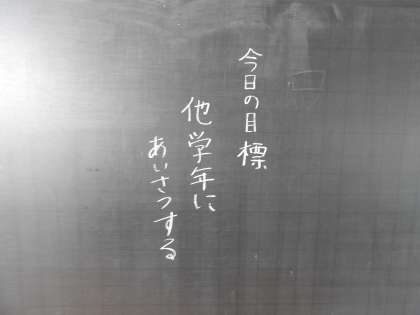 今日の目標
他学年に
あいさつする